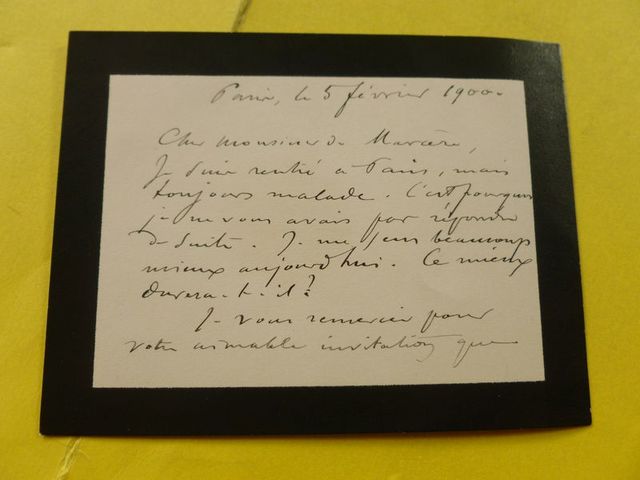 Paris, le 5 février 1900.
Cher Monsieur de Marcère,
Je suis rentré à Paris, mais
toujours malade. C'est pourquoi
je ne vous avais pas répondu
de suite. Je me sens beaucoup
mieux aujourd'hui. Ce mieux
durera-t-il?
Je vous remercie pour
votre aimable invitation que